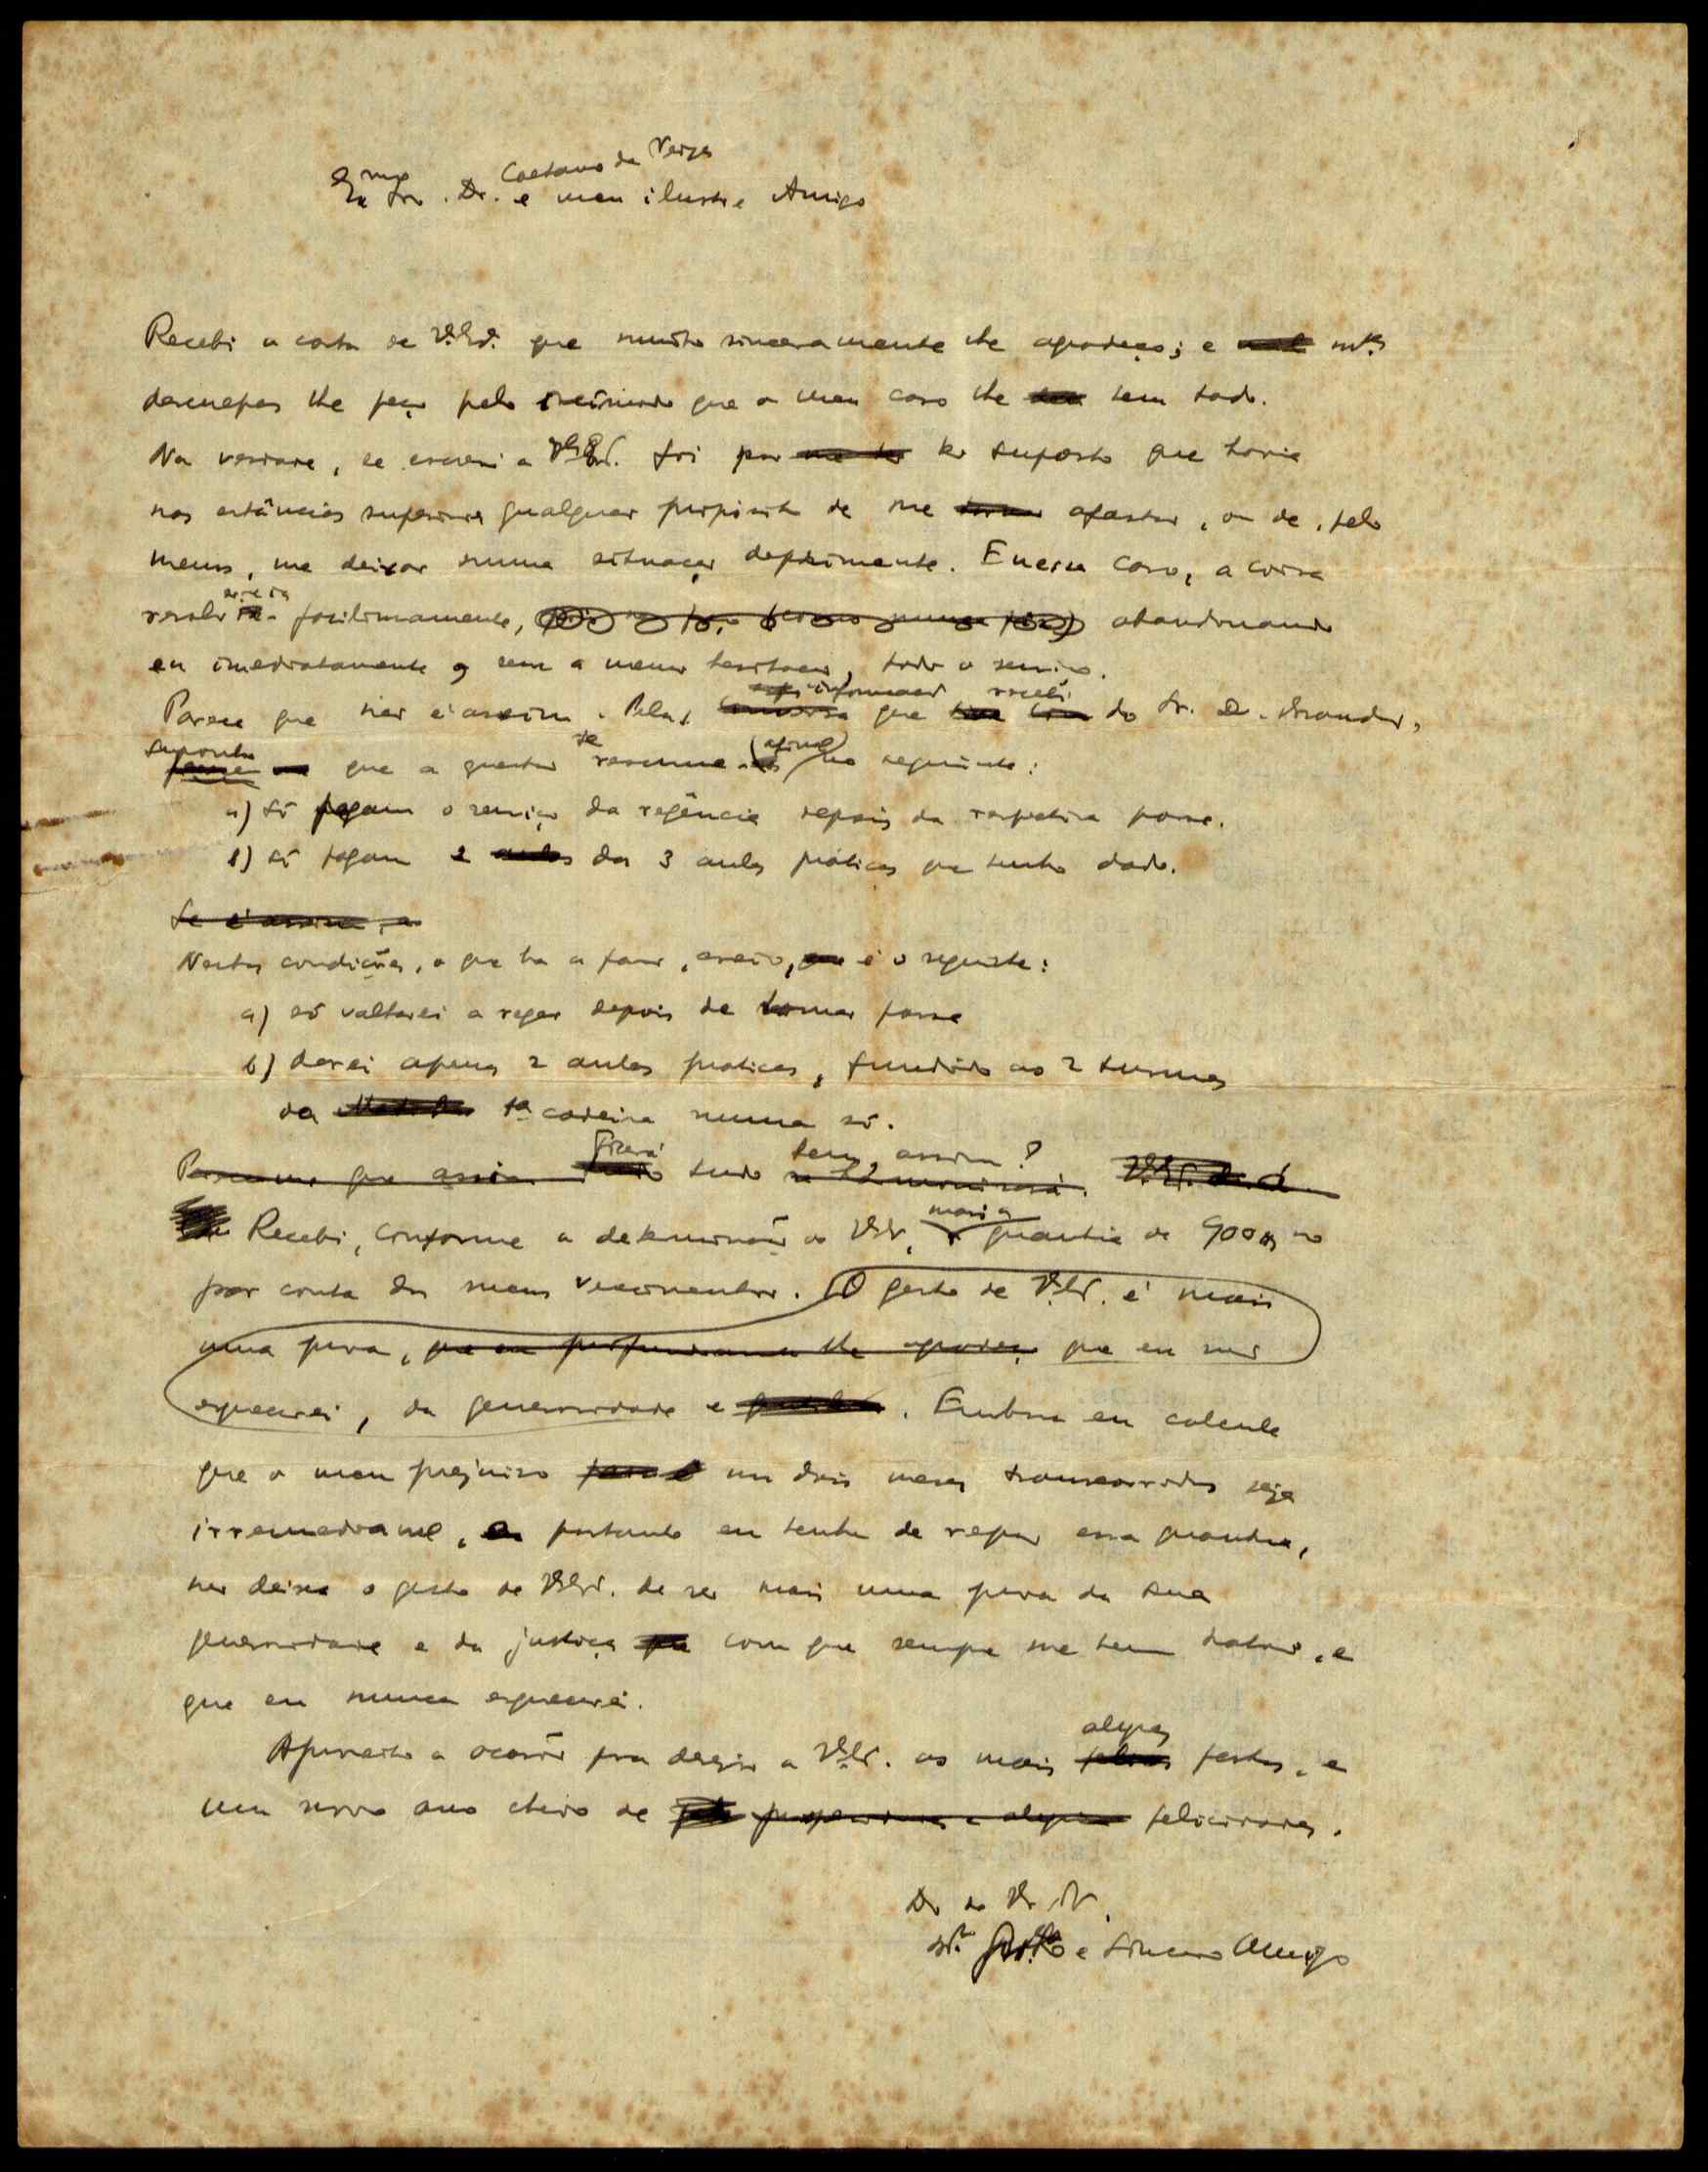 Caetano da Veiga
Exmo Snr. Dr. e meu ilustre Amigo
Recebi a carta de V.Exª. que muito sinceramente lhe agradeço; e mtas
desculpas lhe peço pelo incómodo que o meu caso lhe tem dado.
Na verdade, se escrevi a V.Exª. foi por ter suposto que havia
nas estâncias superiores qualquer propósito de me afastar, ou de, pelo
menos, me deixar numa situação deprimente. E nesse caso, a coisa
facilimamente, abandonando
eu imediatamente, sem a menor hesitação, todo o serviço.
Parece que não é assim. Pelas informações que recebi do Sr. Dr.
suponho que a questão se resume (afinal) no seguinte:
a) só pagam o serviço da regência depois da respectiva posse.
b) só pagam 2 das 3 aulas práticas que tenho dado.
Se é assim, a
Nestas condições, o que ha a fazer, creio, é o seguinte:
a) só voltarei a reger depois de tomar posse
b) darei apenas 2 aulas praticas, fundindo as 2 turmas
da 1ª cadeira numa só.
Parece-me que assim ficará tudo bem, assim?
Recebi, conforme a determinação de V.Exª, mais a quantia de 900$00
por conta dos meus vencimentos. O gesto de V.Exª. é mais
uma prova, que eu profundamente lhe agradeço que eu não
esquecerei, da generosidade e . Embora eu calcule
que o meu prejuizo nos dois meses transcorridos seja
irremediavel, e portanto eu tenha de repor essa quantia,
não deixa o gesto de V.Exª. de ser mais uma prova da sua
generosidade e da justiça com que sempre me tem tratado, e
que eu nunca esquecerei.
alegres
Aproveito a ocasião pra desejar a V.Exª. as mais felizes festas, e
um novo ano cheio de prosperidades e alegrias felicidades.
De V. Exª.
e sincero Amigo